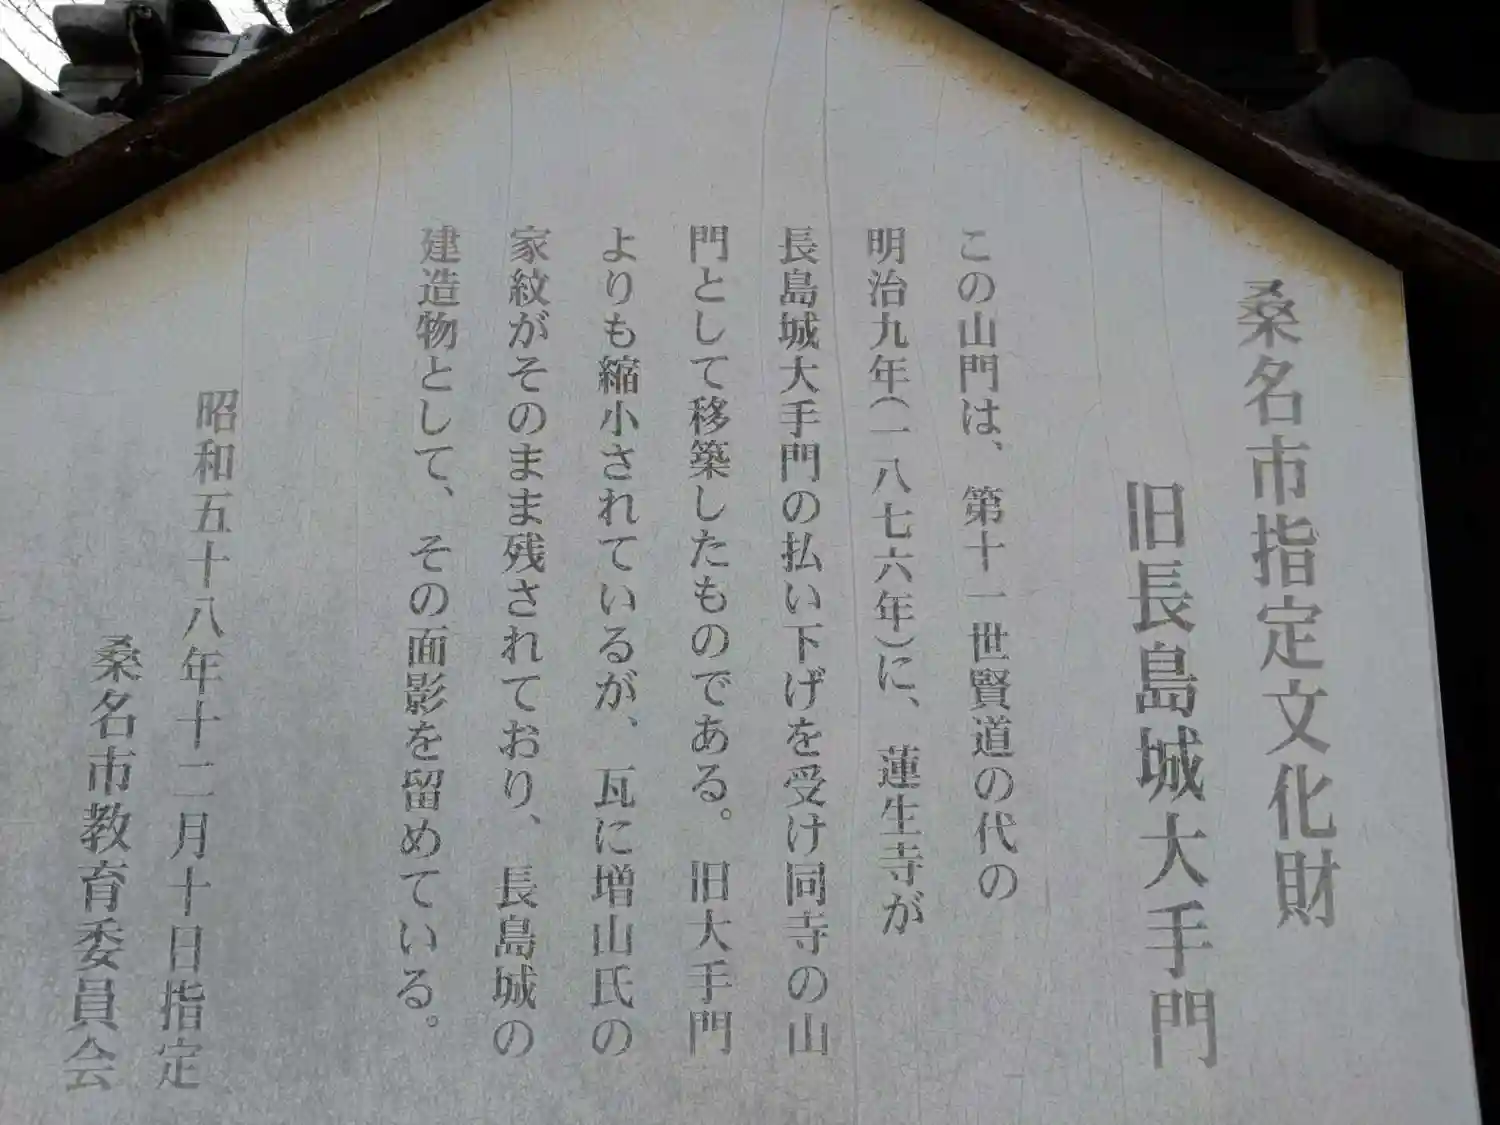 桑名市指定文化財
旧長島城大手門
この山門は、第十一世賢道の代の
明治九年(一八七六年)に、蓮生寺が
長島城大手門の払い下げを受け同寺の山
門として移築したものである。旧大手門
よりも縮小されているが、瓦に増山氏の
家紋がそのまま残されており、長島城の
建造物として、その面影を留めている。
昭和五十八年十二月十日指定
桑名市教育委員会